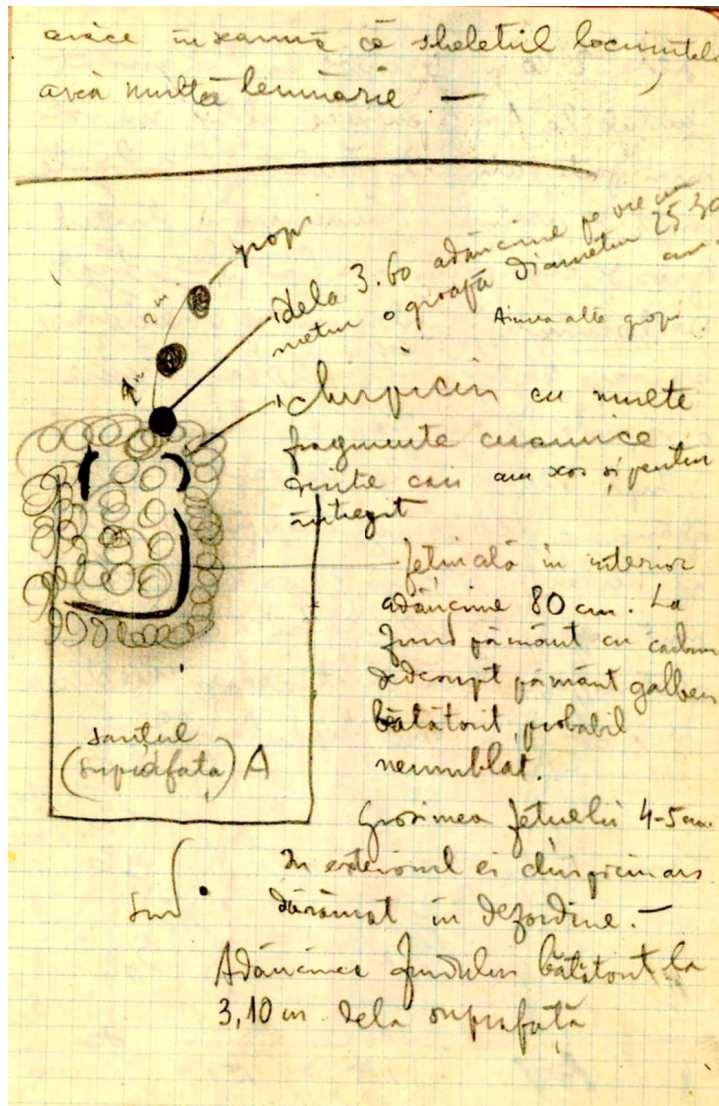 înseamnă că sheletul
avea multă lemnărie —
gropi
2 m
dela 3.60 adâncime pe vre un
metru o groapă diametru 25 30
cm.
Aiurea alte gropi
chirpiciu cu multe
fragmente ceramice
am scos și pentru
întregit
fețuială în interior
adâncime 80 cm. La
fund pământ cu cărbun
dedesupt pământ galben
bătătorit, probabil
neumblat.
șanțul
(suprafața) A
Grosimea fețuelii 4-5 cm.
În exteriorul ei chirpiciu ars
dărâmat în dezordine. —
Sud
Adâncimea fundului bătătorit la
3,10 m dela suprafață